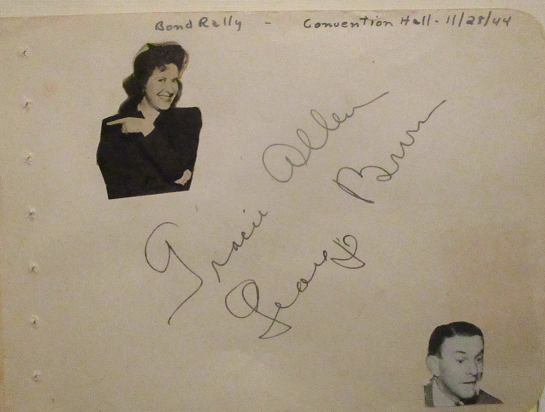 Bond Rally - Convention Hall - 11/28/44
Gracie Allen
George Burns